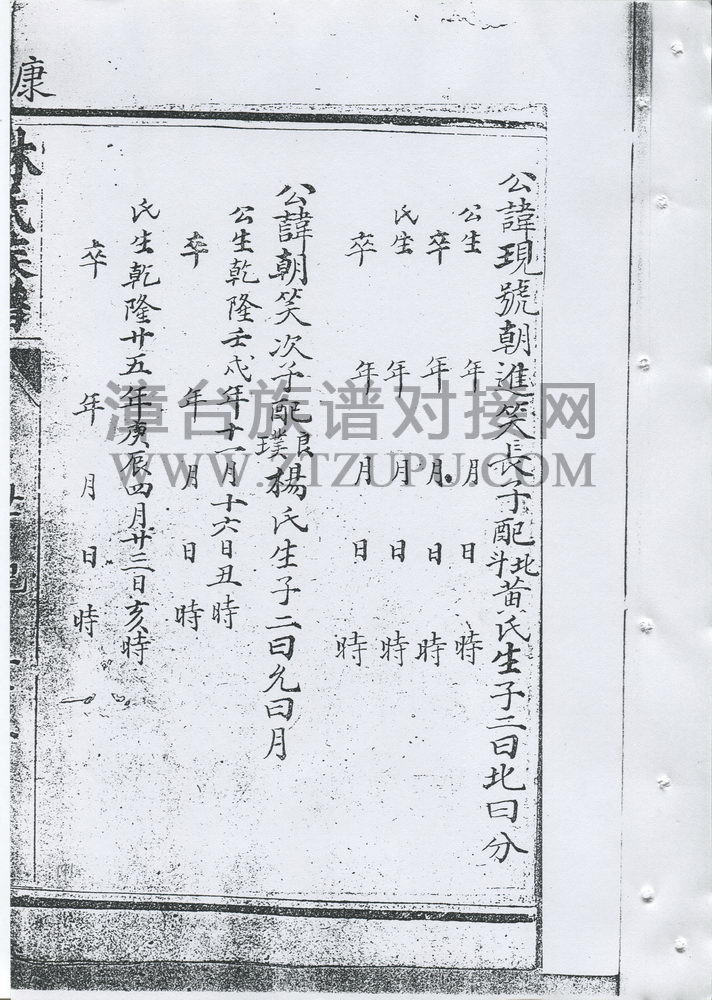 公諱現號朝進笑長子配北斗黃氏生子二曰北曰分
公生 年 月 日 時
卒 年 月 日 時
氏生 年 月 日 時
卒 年 月 日 時
公諱朝笑次子配良璞楊氏生子二曰允曰月
公生乾隆壬戌年十一月十六日丑時
卒 年 月 日 時
氏生乾隆廿五年庚辰四月廿三日亥時
卒 年 月 日 時
康
林氏族譜
漳台族谱对接网
WWW.ZTZUPU.COM